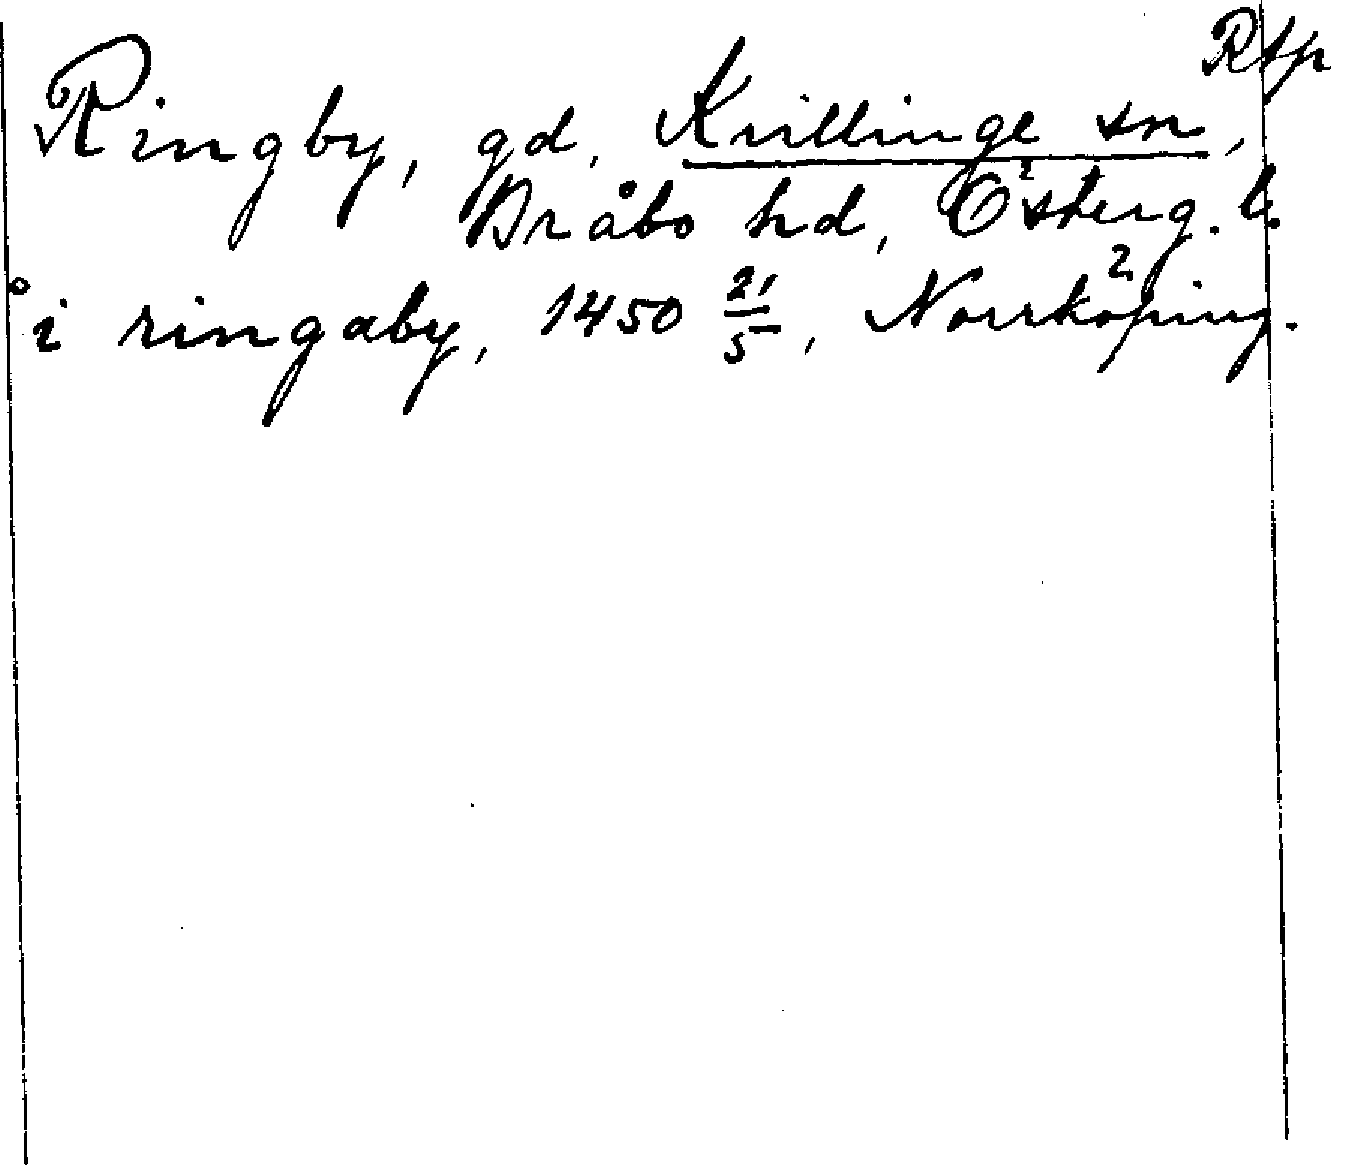 Rfp
Ringby, gd, Kvillinge sn,
Bråbo hd, Österg. l.
i ringaby, 1450 21/5, Norrköping.